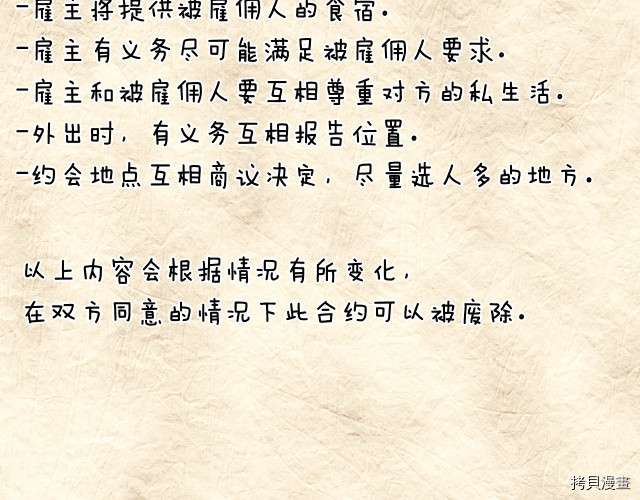 -雇主将提供被雇佣人的食宿。
-雇主有义务尽可能满足被雇佣人要求。
-雇主和被雇佣人要互相尊重对方的私生活。
-外出时，有义务互相报告位置。
-约会地点互相商议决定，尽量选人多的地方。
以上内容会根据情况有所变化，
在双方同意的情况下此合约可以被废除。
拷貝漫畫